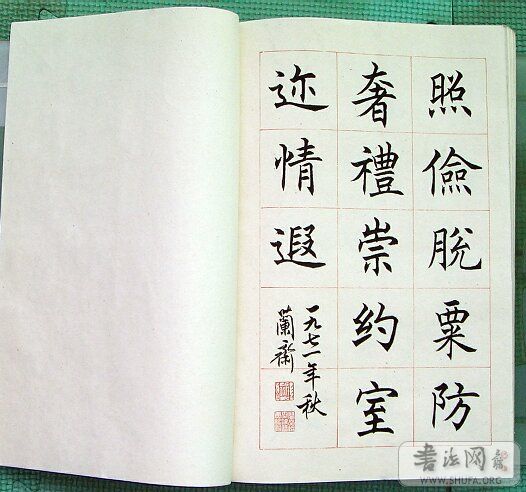 照儉脫粟防
奢禮崇约室
迩情遐
一九七一年秋
蘭齋
书法网
WWW.SHUFA.ORG